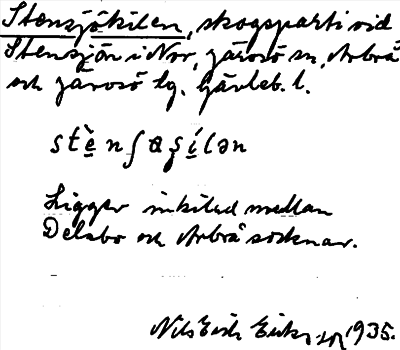 Stensjökilen, skogsparti vid
Stensjön i Nor, Järvsö sn, Arbrå
och Järvsö tg. Gävleb. l.
stènʃaʂílən
Ligger inkilad mellan
Delsbo och Arbrå socknar.
Nils Erik 1935.